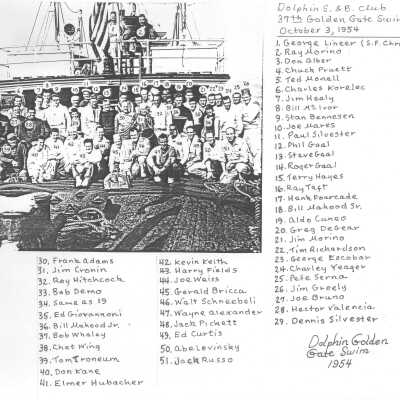 Dolphin S. & B. Club
37th Golden Gate Swim
October 3, 1954
1. George Lineer (S.F. Chro
2. Ray Morino
3. Don Alber
4. Chuck Pruett
5. Ted Monell
6. Charles Korelec
7. Jim Healy
8. Bill McIvor
9. Stan Bennesen
10. Joe Mares
11. Paul Silvester
12. Phil Gaal
13. Steve Gaal
14. Roger Gaal
15. Terry Hayes
16. Ray Taft
17. Hank Fourcade
18. Bill Mahood Sr.
19. Aldo Cuneo
20. Greg DeGear
21. Jim Morino
22. Tim Richardson
23. George Escobar
24. Charley Yeager
25. Pete Serna
26. Jim Greely
27. Joe Bruno
28. Hector Valencia
29. Dennis Silvester
30. Frank Adams
31. Jim Cronin
32. Ray Hitchcock
33. Bob Demo
34. Same as 19
35. Ed Giovannoni
36. Bill Mahood Jr.
37. Bob Whaley
38. Chet Wing
39. Tom Troneum
40. Don Kane
41. Elmer Hubacher
42. Kevin Keith
43. Harry Fields
44. Joe Weiss
45. Gerald Bricca
46. Walt Schneebeli
47. Wayne Alexander
48. Jack Pickett
49. Ed Curtis
50. Abe Lovinsky
51. Jack Russo
Dolphin Golden
Gate Swim
1954